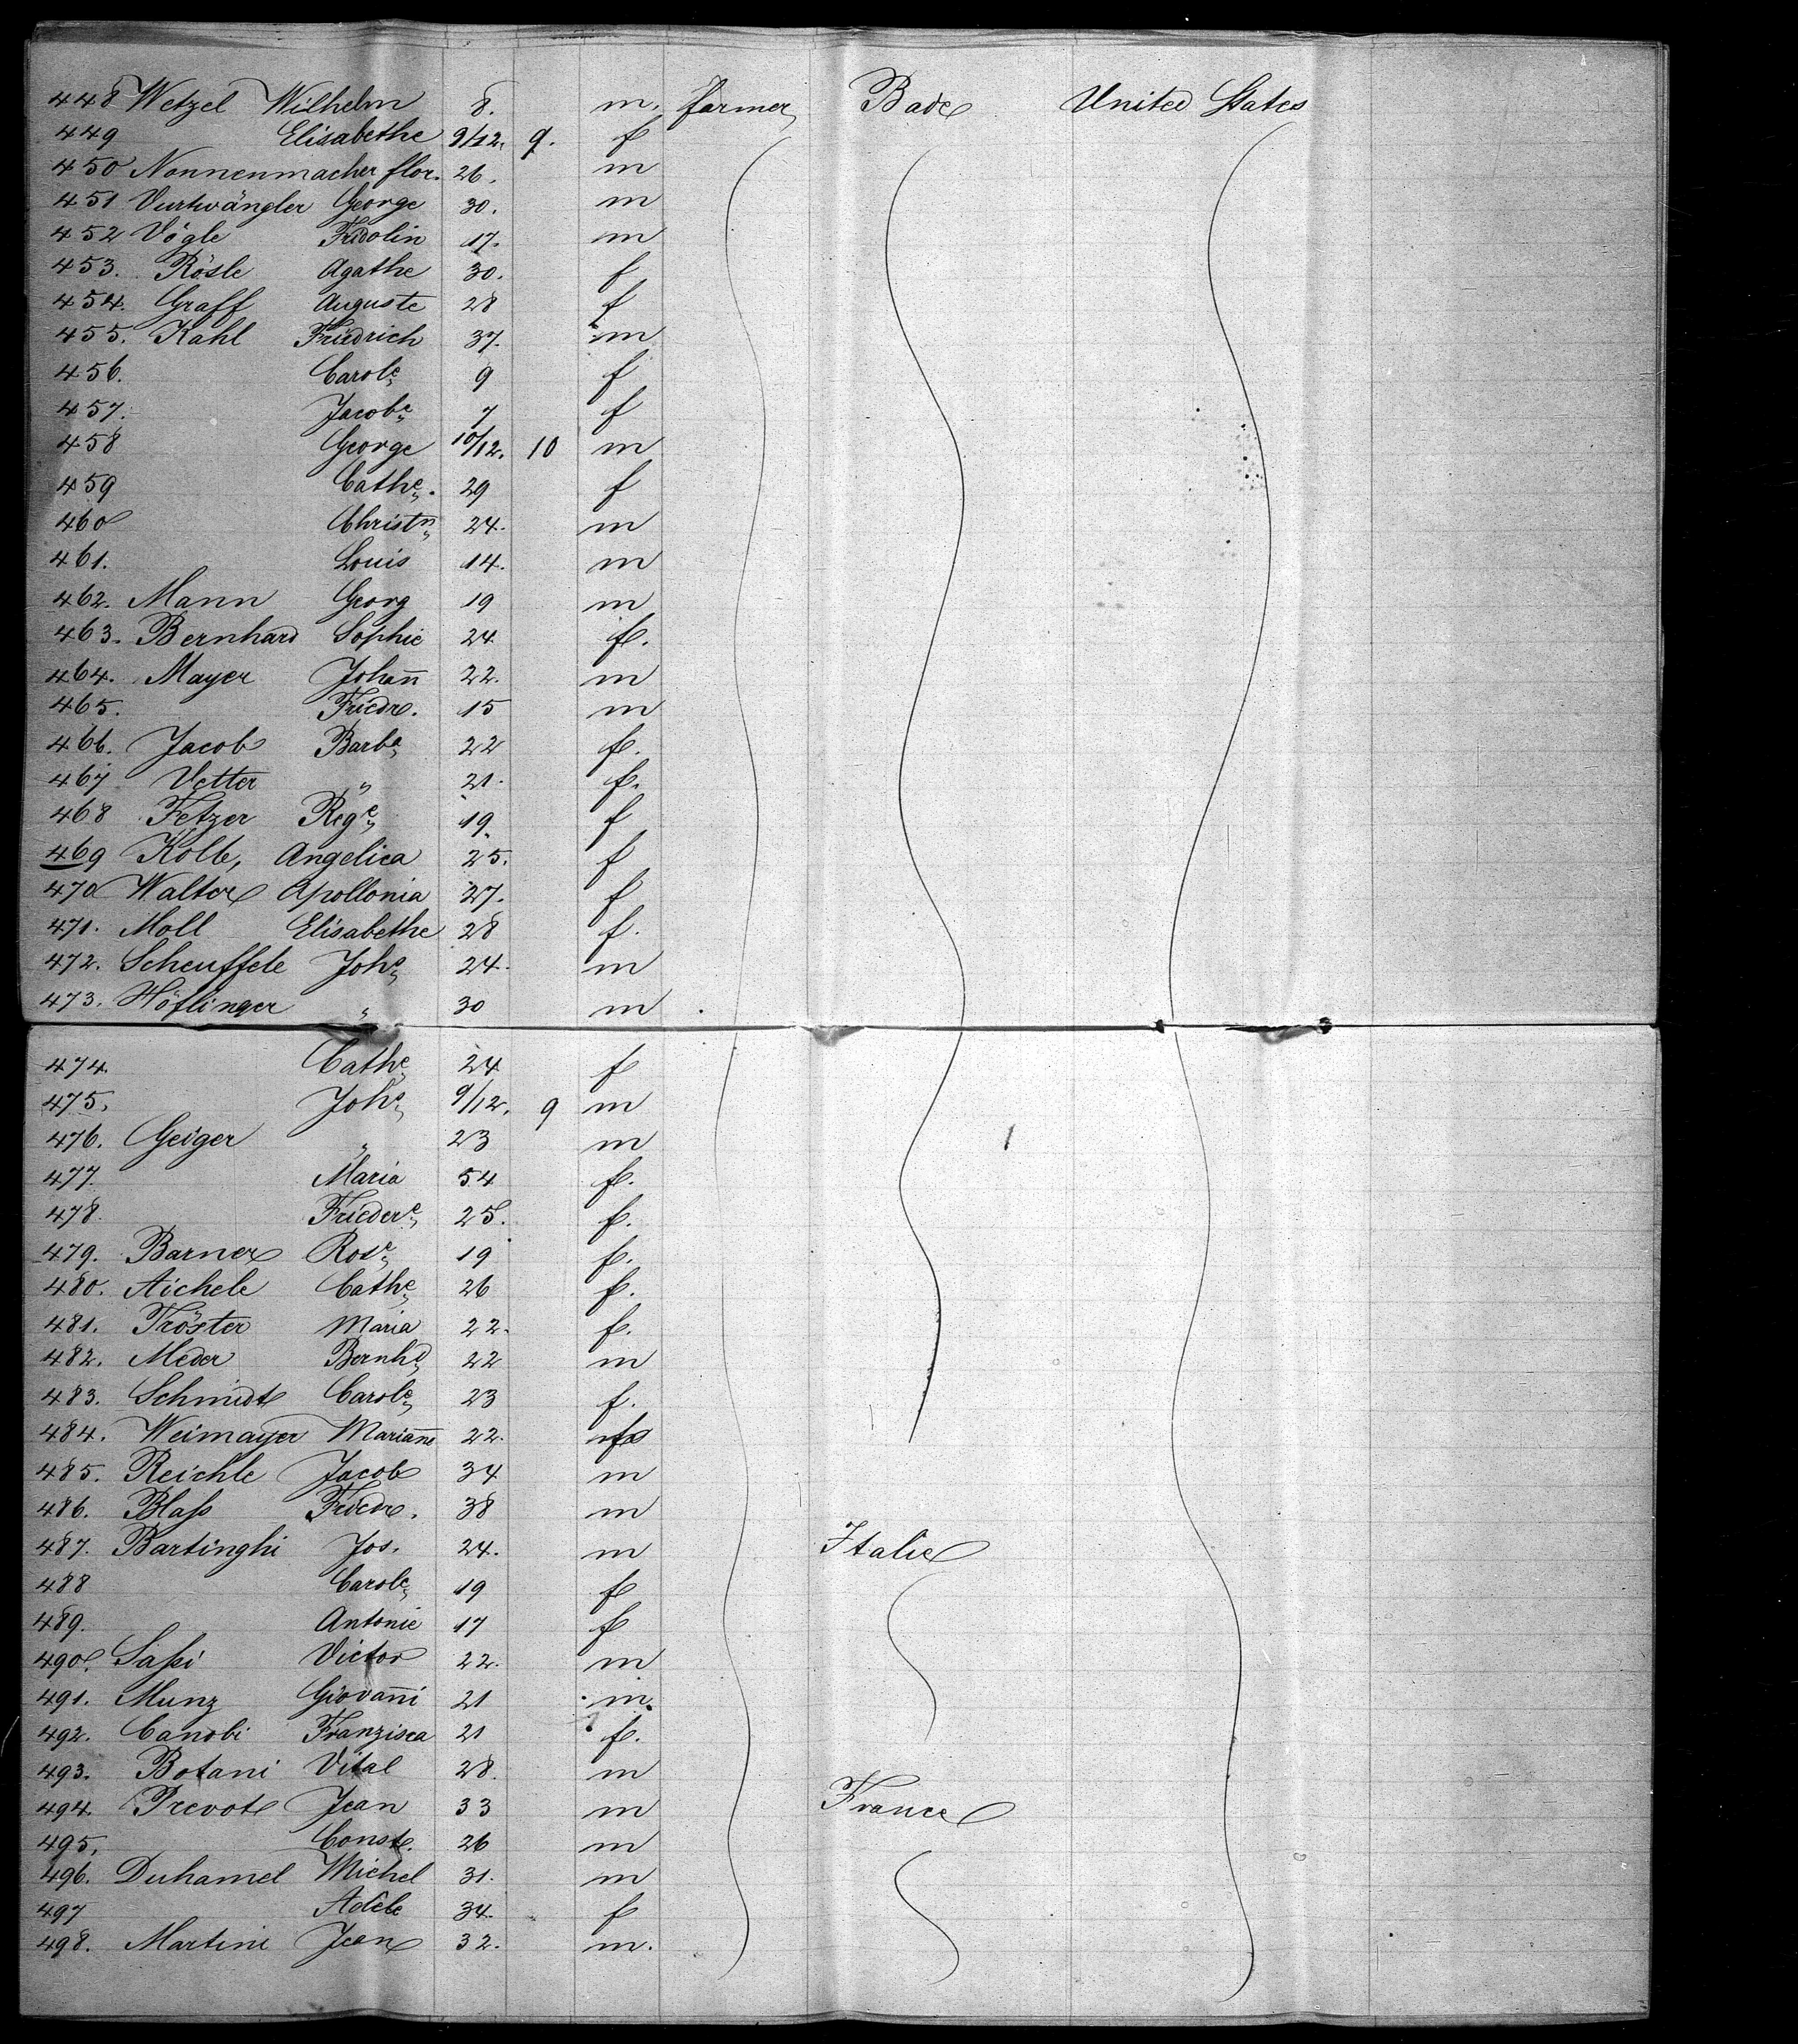 448 Wetzel Wilhelm 8. m. farmer Bade United States
449 Elisabethe 9/12. 9. f
450 Nonnenmacher flor. 26. m
451 Vurtwängler George 30. m
452 Vögle Fridolin 17. m
453. Rösle Agathe 30. f
454. Graff Auguste 28 f
455. Kahl Friedrich 37. m
456. Carole 9 f
457. Jacobe 7 f
458 George 10/12. 10 m
459 Cathe. 29 f
460 Christn 24. m
461. Louis 14. m
462. Mann Georg 19 m
463. Bernhard Sophie 24 f.
464. Mayer Johan̄ 22. m
465. Friedr. 15 m
466. Jacob Barba 22 f.
467 Vetter " 21. f.
468 Fetzer Rege 19. f
469 Kolb, Angelica 25. f
470 Walter Apollonia 27. f
471. Moll Elisabethe 28 f.
472. Scheuffele Johs 24. m
473. Höflinger " 30 m
474. Cathe 24 f
475. Johs 9/12. 9 m
476. Geiger " 23 m
477. Maria 54 f.
478. Friedere 25. f.
479. Barner Rose 19 f.
480. Aichele Cathe 26 f.
481. Tröster Maria 22. f.
482. Meder Bernhd 22 m
483. Schmidt Carole 23 f.
484. Weimayer Marian̄e 22. f
485. Reichle Jacob 34 m
486. Blaß Friedr. 38 m
487. Bartinghi Jos. 24. m Italie
488 Carole 19 f
489. Antonie 17 f
490. Saßi Victor 22. m
491. Munz Giovan̄i 21 m.
492. Canobi Franzisca 21 f.
493. Botani Vital 28. m
494. Prevot Jean 33 m France
495. Const. 26 m
496. Duhamel Michel 31. m
497 Adèle 34. f
498. Martini Jean 32. m.